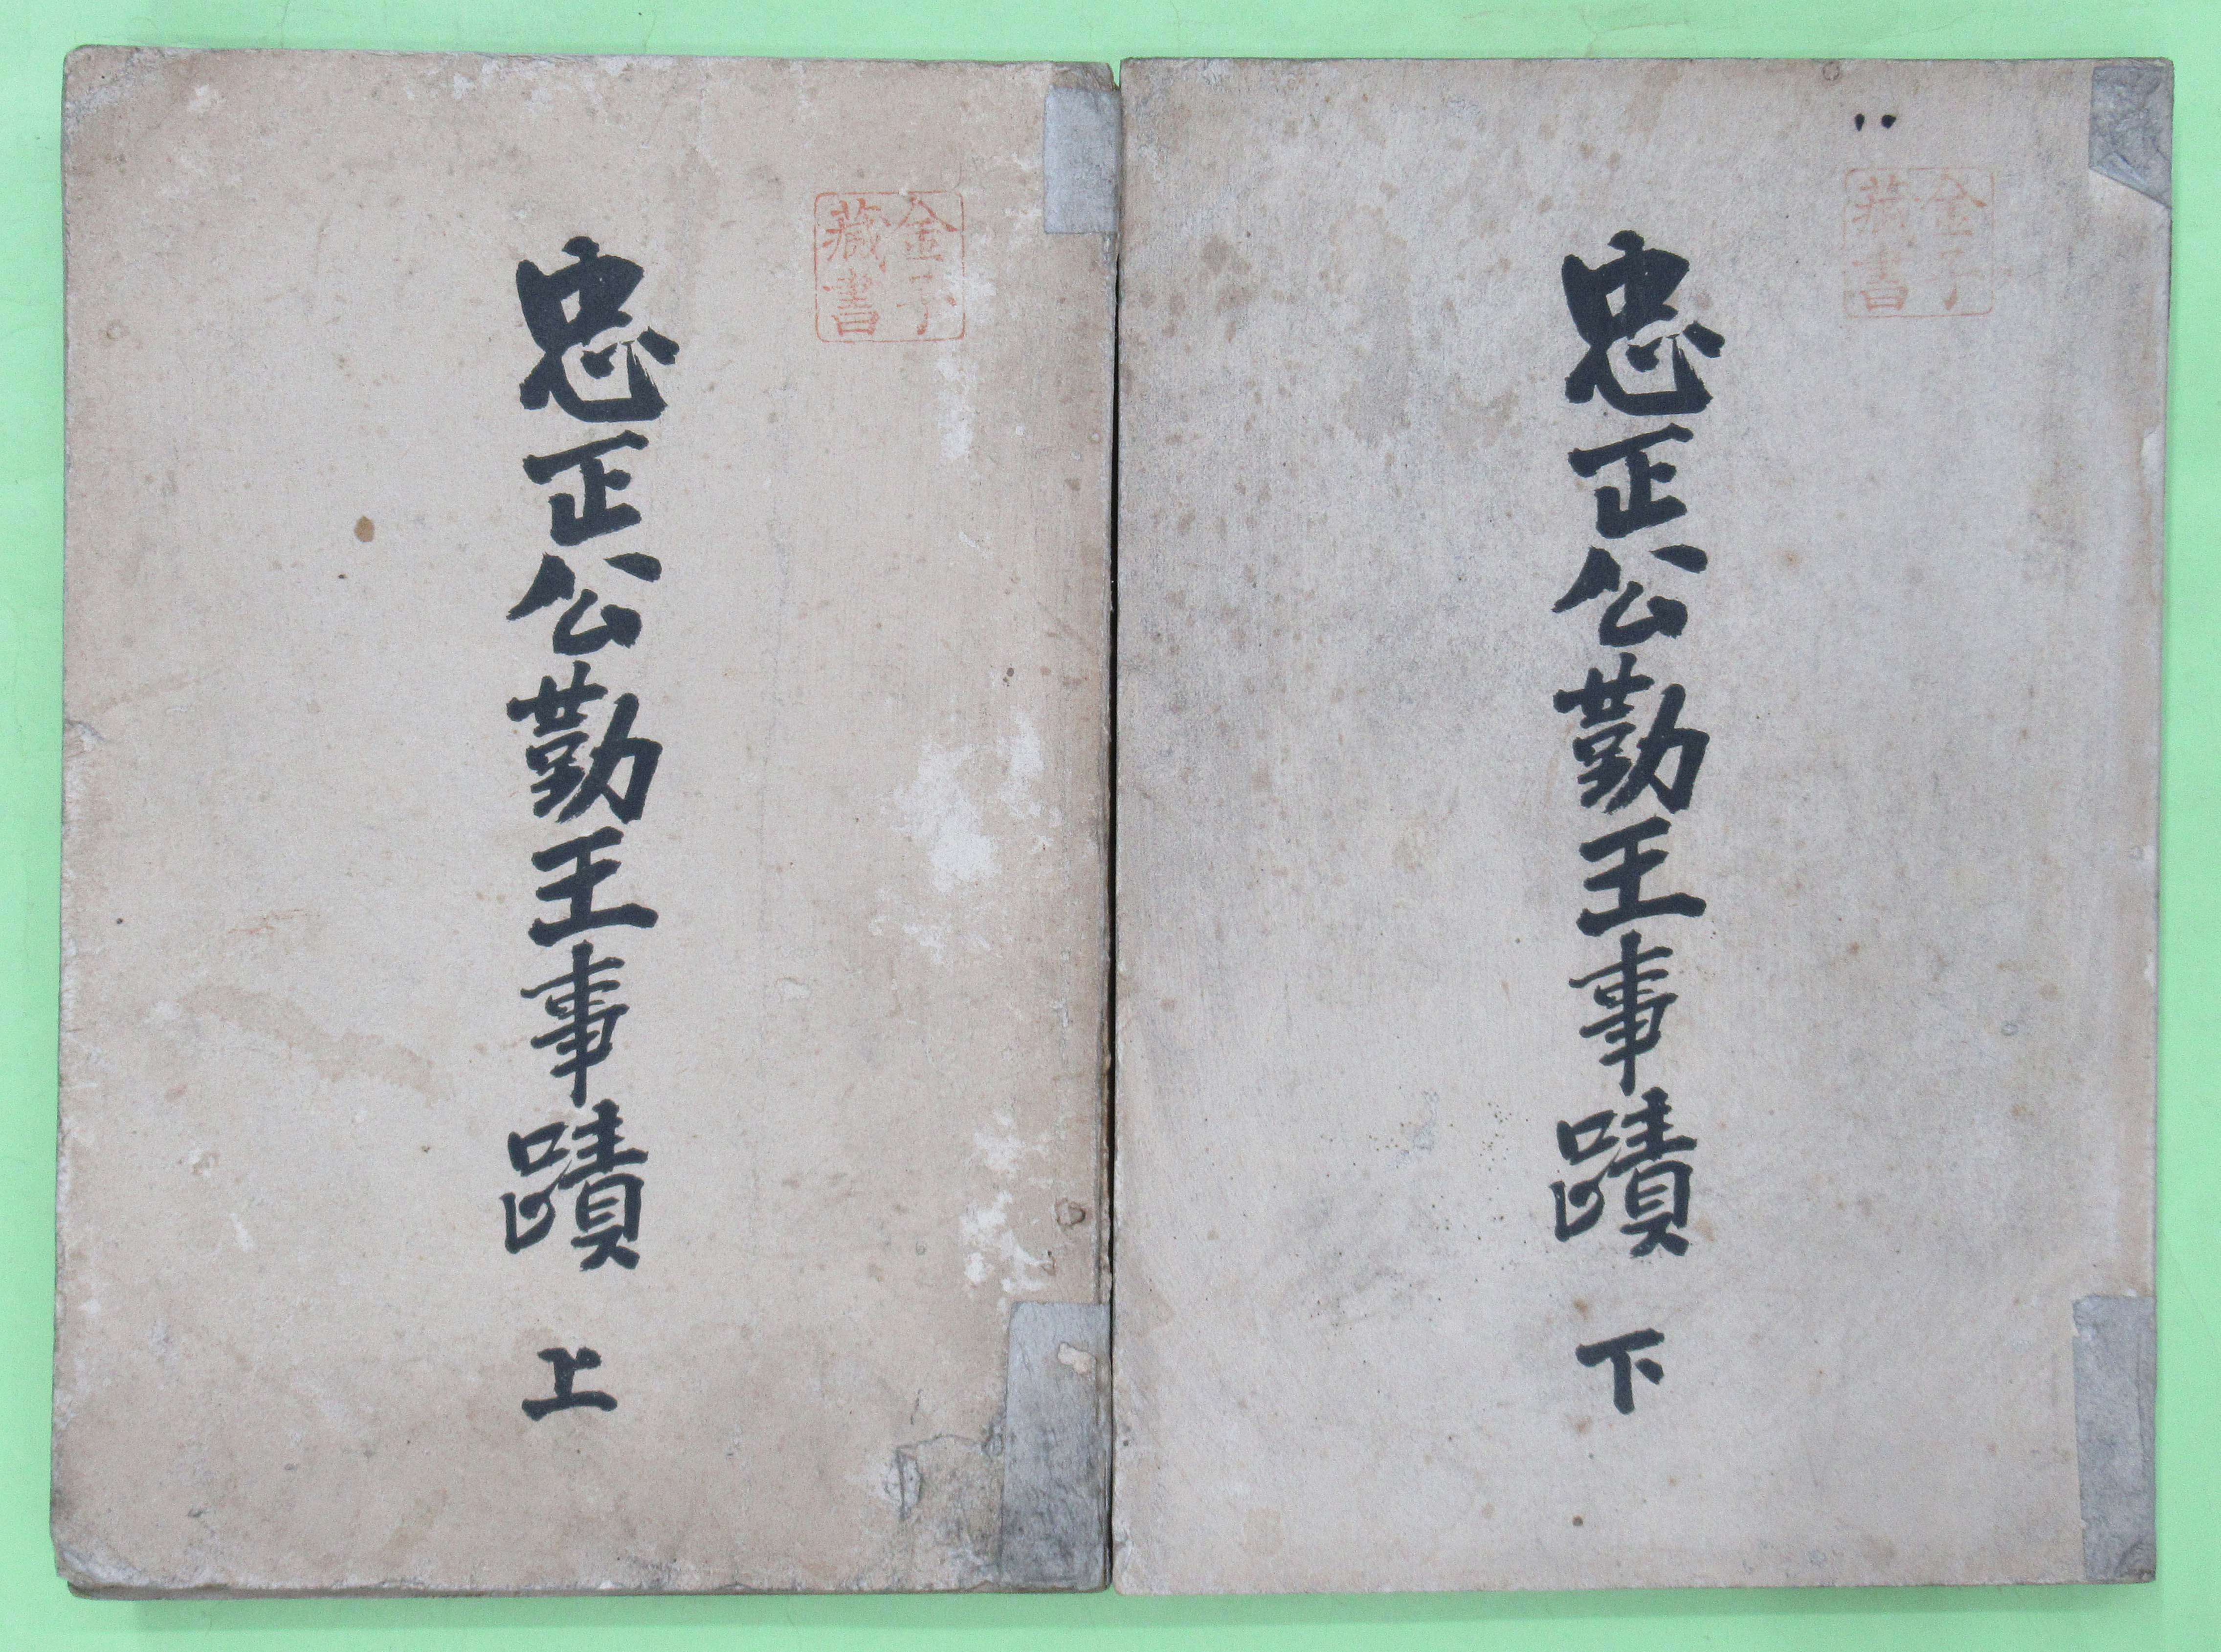 忠正公勤王事蹟 上
金子
藏書
忠正公勤王事蹟 下
金子
藏書